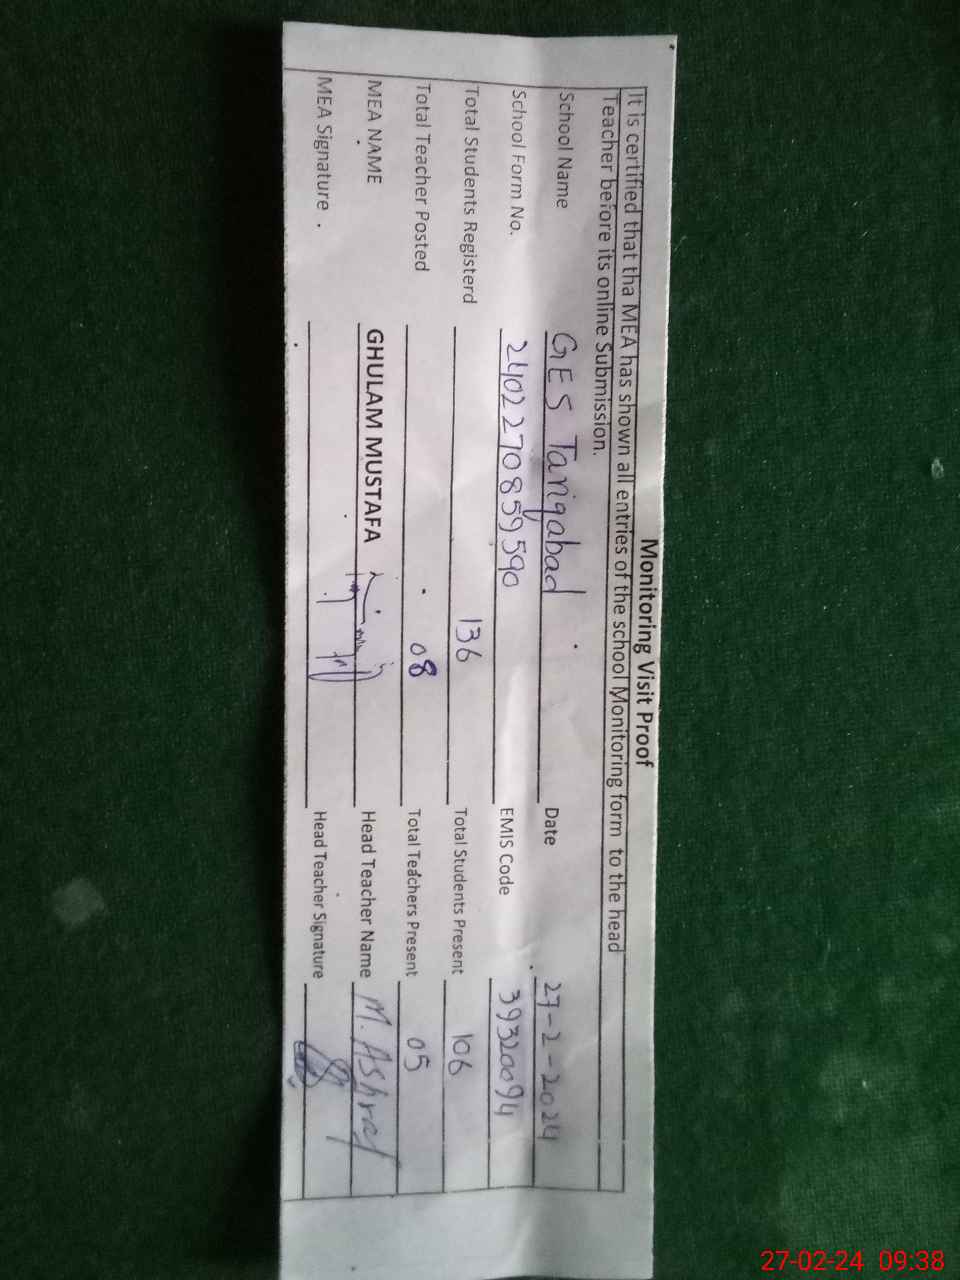 Monitoring Visit Proof
It is certified that tha MEA has shown all entries of the school Monitoring form to the head
Teacher before its online Submission.
School Name GES Tariqabad Date 27-2-2024
School Form No. 2402270859590 EMIS Code 39320094
Total Students Registerd 136 Total Students Present 106
Total Teacher Posted 08 Total Teachers Present 05
MEA NAME GHULAM MUSTAFA Head Teacher Name M. Ashraf
MEA Signature Head Teacher Signature
27-02-24 09:38